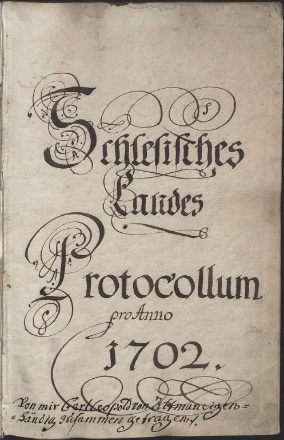 Schlesisches
Landes
Protocollum
pro Anno
1702.
Von mir Carl Leopold von Altman eigen=
=händig zusammen getragen.